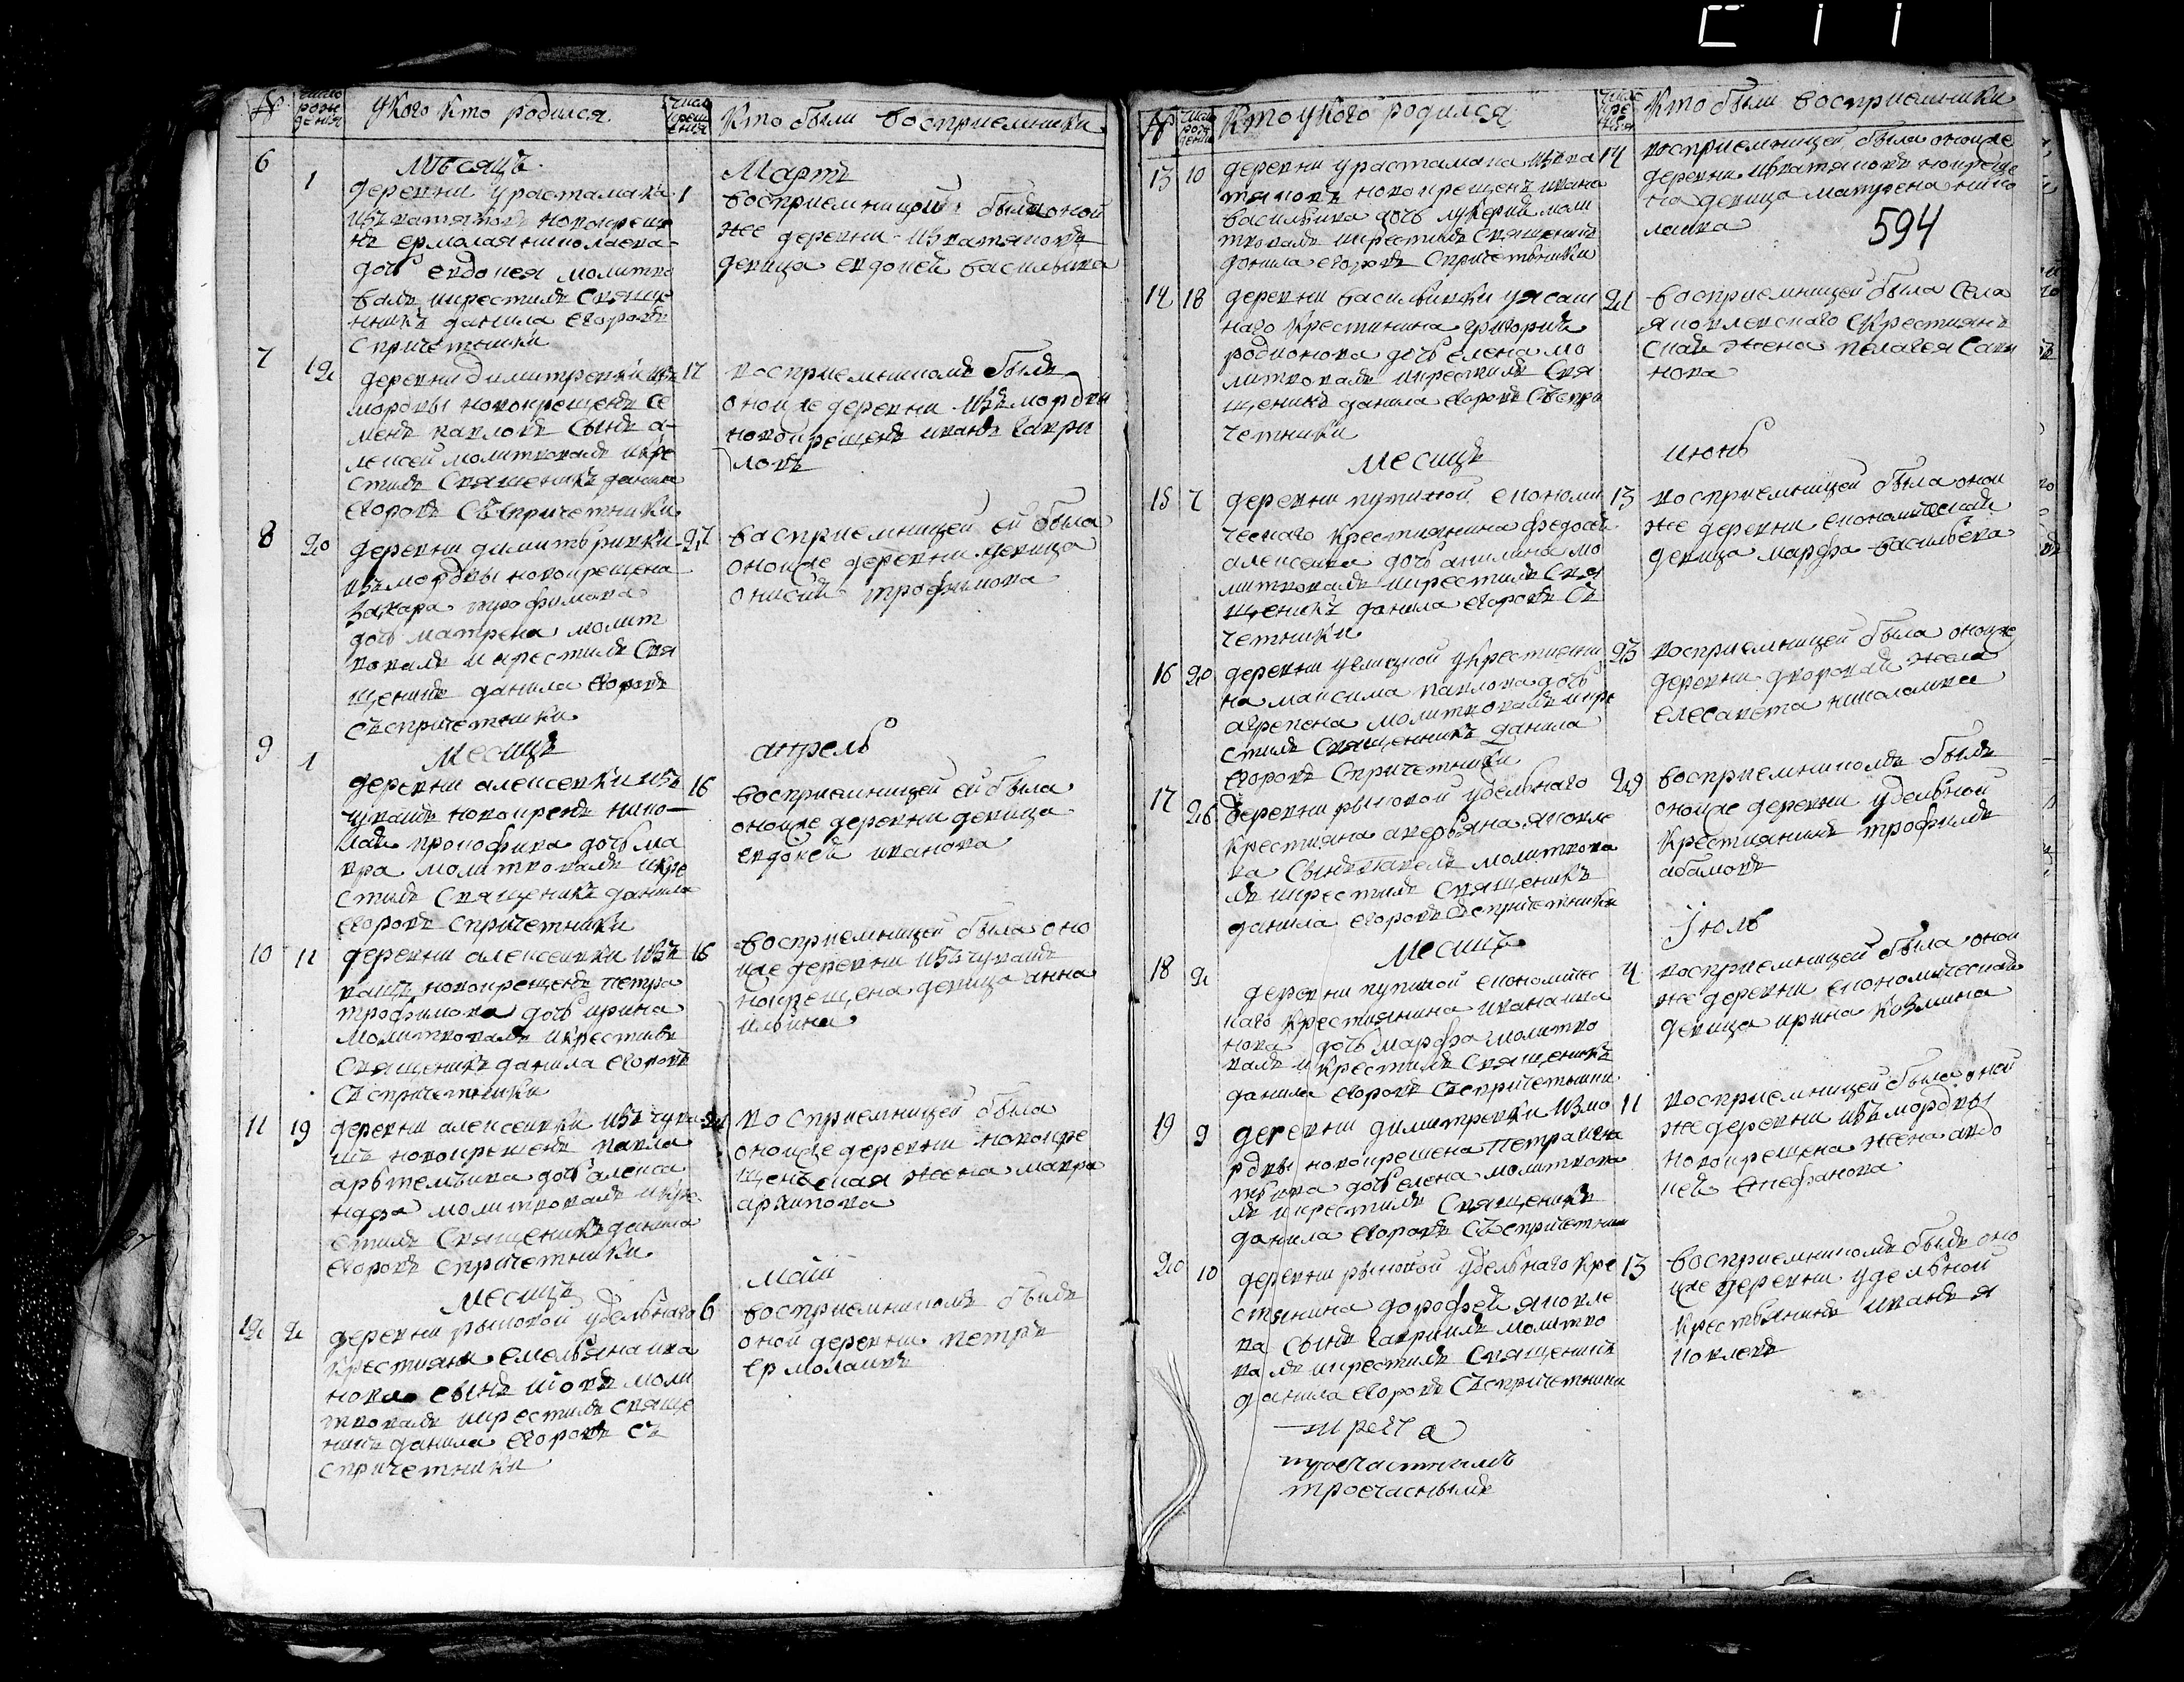 № число рождения У кого кто родился число крещения Кто были восприемники
Мѣсяцъ Мартъ
6 1 деревни урастамака 1
изъ ватяковъ новокреще
нъ ермолая николаева
дочь евдокея молитво
валъ икрестилъ Свяще
нникъ данила егоровъ
спричетники
восприемницой была оной
же деревни изватяковъ
девица евдокей васильива
7 12 деревни димитревки изъ 17
мордвы новокрещенъ се
менъ павловъ Сынъ а-
лексей молитвовалъ икре
стилъ Священикъ данила
егоровъ Съспричетники
восприемникомъ былъ
оноиже деревни изъ мордвы
новокрещенъ иванъ гаври
ловъ
8 20 деревни димитьривки 27
изъ мордвы новокрещена
захара трофимова
дочь матрена молит
вовалъ икрестилъ Свя
щеникъ данила егоровъ
съспричетники
васприемницей ей была
оноиже деревни девица
онисия трофимова
Месицъ апрель
9 1 деревни алексевки изъ 16
чувашъ новокренъ нико-
лай прокофива дочь ма
вра молитвовалъ икре
стилъ Священикъ данила
егоровъ спричетники
восприемницей ей была
оноиже деревни девица
евдокей иванова
10 11 деревни алексевки изъ 16
вашъ новокрещенъ петра
трофимова дочь ирина
молитвовалъ икрестилъ
Священикъ данила егоровъ
съспричетники
восприемницей была оно
иже деревни изъ чувашъ
нокрещена девица анна
ильина
11 19 деревни алексевки изъ чува
шъ новокрещенъ павла
арьтемьива дочь алекса
ндра молитвовалъ икре
стилъ Священикъ данила
егоровъ спричетники
восприемницей была
оноиже деревни новокре
щенская жена мавра
архипова
Месицъ Маии
12 2 деревни рыковой удельнаго 6
крестияни емельяна ива
нова сынъ иовъ моли
твовалъ икрестилъ свяще
никъ данила егоровъ съ
спричетники
восприемникомъ былъ
оной деревни петръ
ермолаивъ
№ число рождения Кто укого родился число крещения Кто были восприемники
594
13 10 деревни урастамака изъва 14
тяковъ новокрещенъ ивана
васильива дочь лукерий моли
твовалъ икрестилъ Священикъ
данила егоровъ Спричетьники
восприемницей была оноиже
деревни изватяковъ нокреще
на девица матрена нико
лаива
14 18 деревни васильивки уясаш 21
наго крестинина григория
родионова дочь елена мо
литвовалъ икрестилъ Свя
щеникъ данила егоровъ Съспри
четники
восприемницей была Села
яковлевскаго крестиянъ
ская жена пелагея Сави
нова
Месицъ июнь
15 7 деревни путиной економи 13
ческаго крестиянина федосей
алексева дочь акилина мо
литвовалъ икрестилъ Свя
щеникъ данила егоровъ Съ
четники
восприемницей была оной
же деревни економической
девица марфа васильева
16 20 деревни укрестияни 23
на максима павлова дочь
агрепена молитвовалъ икре
стилъ Священникъ данила
егоровъ Спричетники
восприемницей была оноиже
деревни дворовой жена
елесавета николаива
17 26 деревни рыковой удельнаго 29
крестияна аверьяна яковле
ва Сынъ павелъ молитвова
лъ икрестилъ Священикъ
данила егоровъ Съспричетники
восприемникомъ былъ
оноиже деревни удельной
крестиянинъ трофимъ
абамовъ
Месицъ Июль
18 2 деревни путиной економичес 4
каго крестиянина ивана ива
нова дочь марфа молитво
валъ икрестилъ Священикъ
данила егоровъ Съспричетники
восприемницей была оной
же деревни економической
девица ирина козмина
19 9 деревни димитревки измо 11
рдвы новокрещена петра игна
тьива дочь елена молитвова
лъ икрестилъ Священикъ
данила егоровъ Съспричетники
восприемницей была оной
же деревни изъ мордвы
новокрещена жена авдо
кей епефанова
20 10 деревни рыковой удельнаго кре 13
стянина дорофей яковле
ва сынъ гавриилъ молитво
валъ икрестилъ Священикъ
данила егоровъ Съспричетники
восприемникомъ былъ оно
иже деревни удельной
крестьянинъ иванъ я
ковлевъ
троечасныме